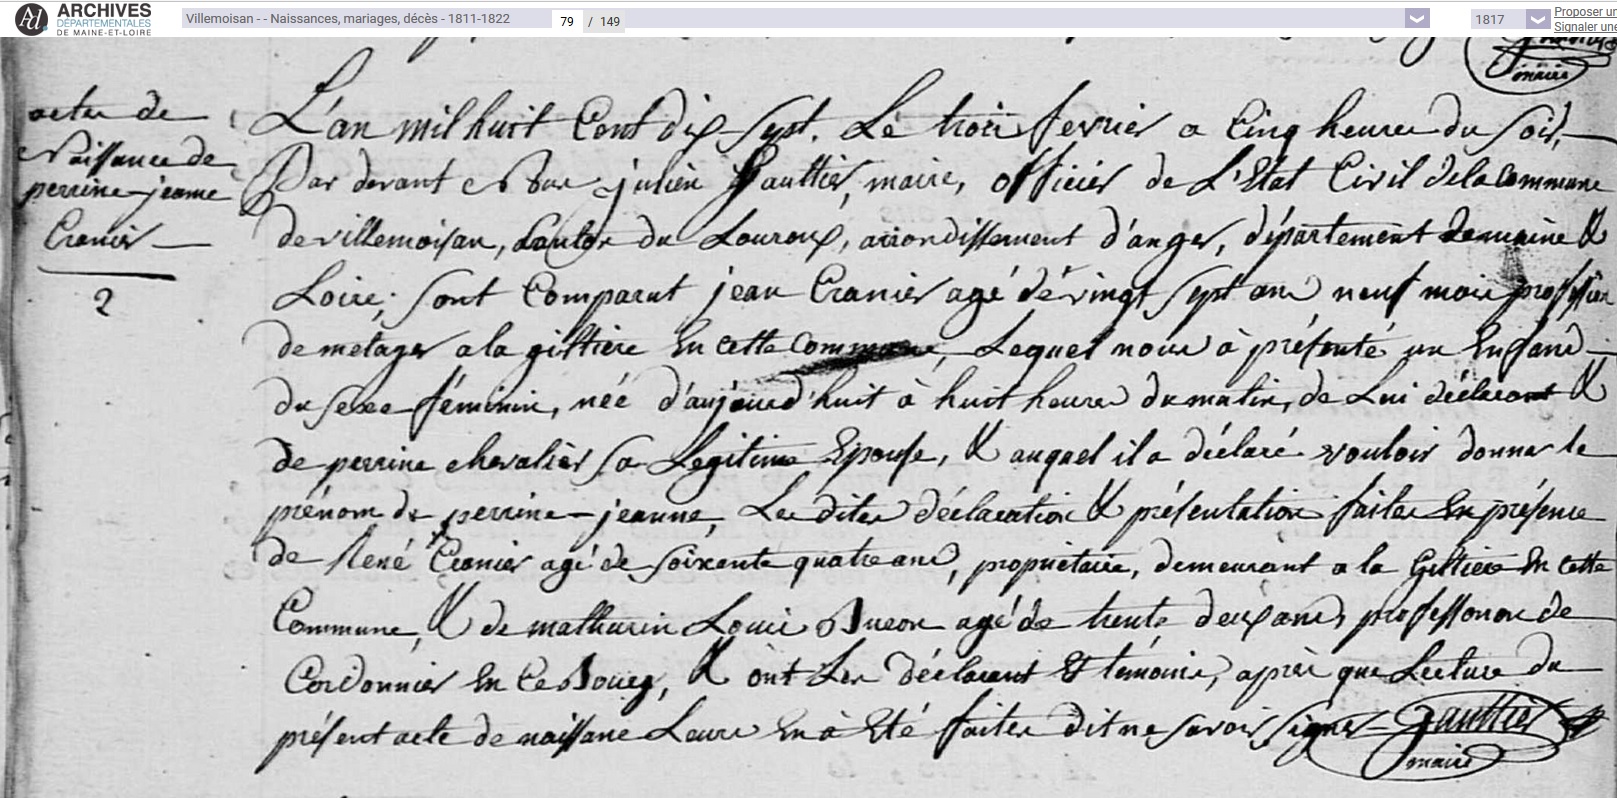 ARCHIVES
DÉPARTEMENTALES
DE MAINE-ET-LOIRE
Villemoisan - - Naissances, mariages, décès - 1811-1822
79 / 149
1817
Proposer un
Signaler une
maire
acte de
Naissance de
perrine-jeanne
Cranier
2
L'an mil huit Cent dix-sept, Le trois fevrier a Cinq heures du soir,
Par devant Nous julien Gaultier, maire, officier de L'Etat Civil de la Commune
de villemoisan, Canton du Louroux, arrondissement d'anger, département de maine &
Loire; sont Comparut jean Cranier agé de vingt sept ans neuf mois profession
de metager a la gilttière En cette Commune, Lequel nous à présenté un Enfand
du sexe féminin, née d'aujourd'huit à huit heures du matin, de Lui déclarant &
de perrine chevalier sa Legitime Epouse, & auquel il a déclaré vouloir donner le
prénom de perrine-jeanne, Les dites déclaration & présentation faites En présence
de René Cranier agé de soixante quatre ans, propriétaire, demeurant a la Gilttiere En cette
Commune, & de mathurin Louis agé de trente deux ans, professonon de
Cordonnier En ce Bourg, & ont Les déclarant Et témoins, après que Lecture du
présent acte de naissane Leurs En à Eté faites dit ne savoir signer - Gaultier
maire